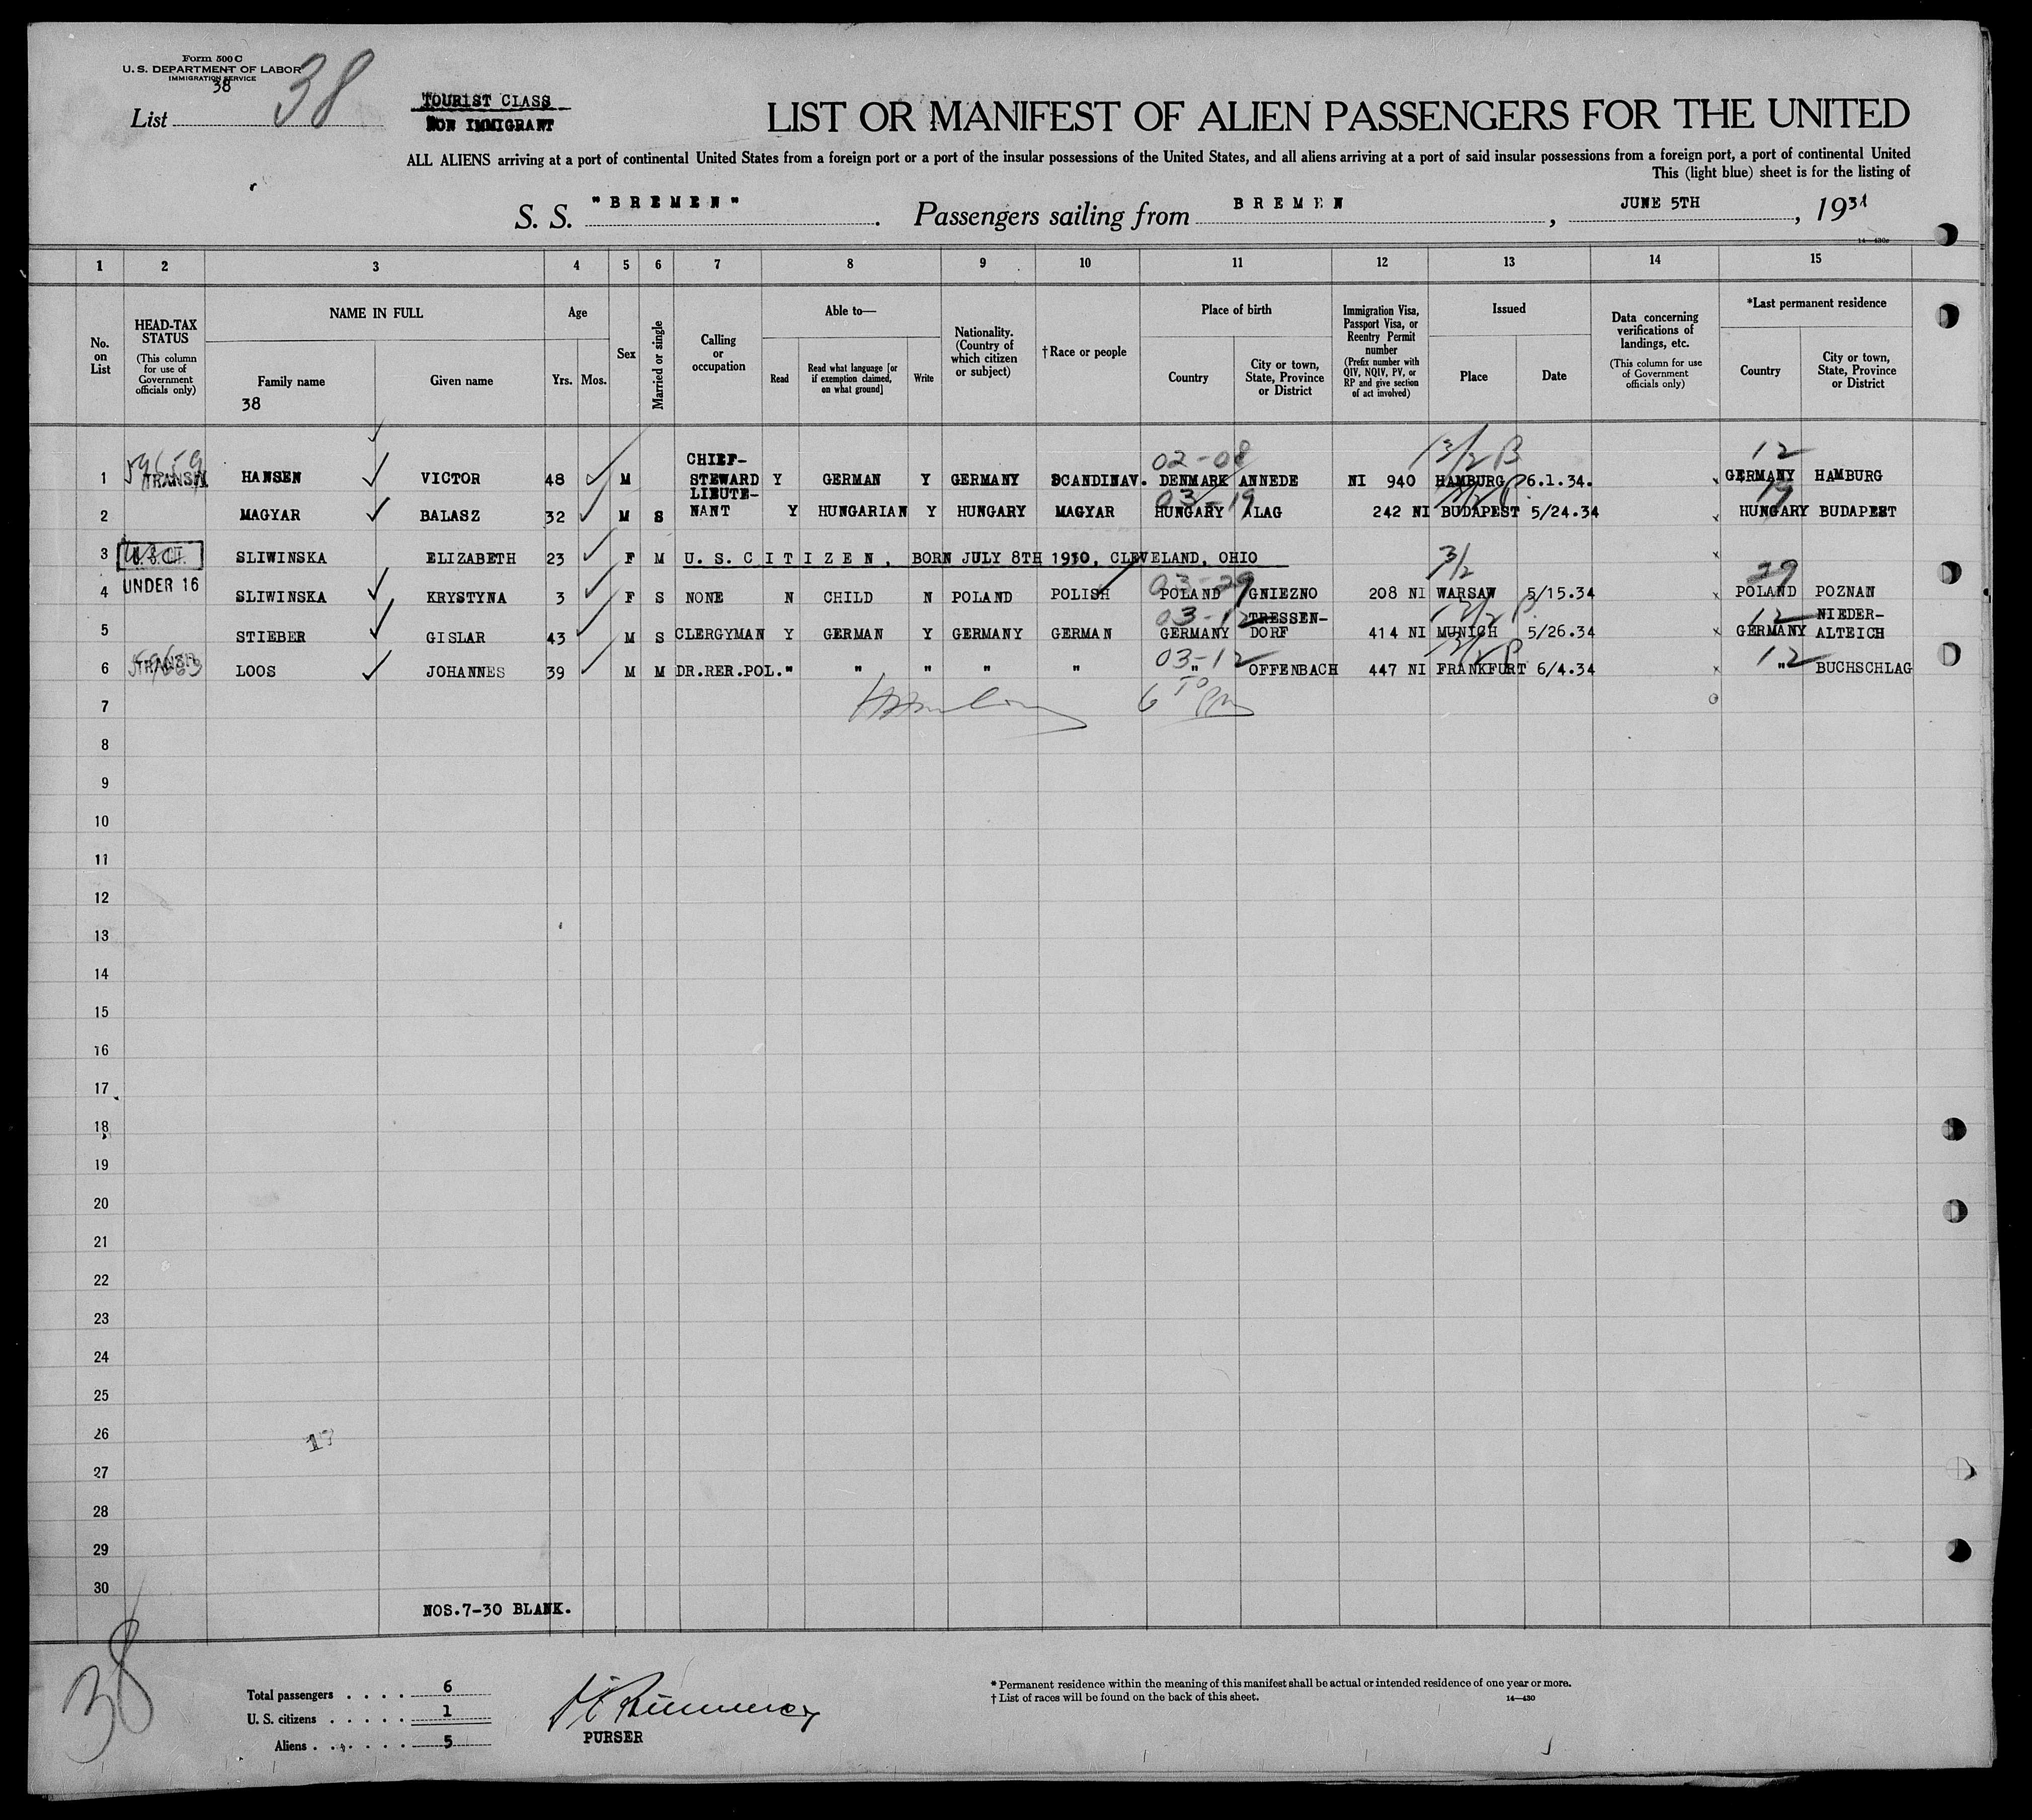 Form 500 C
U. S. DEPARTMENT OF LABOR
IMMIGRATION SERVICE
38
List 38
TOURIST CLASS
NON IMMIGRANT
LIST OR MANIFEST OF ALIEN PASSENGERS FOR THE UNITED
ALL ALIENS arriving at a port of continental United States from a foreign port or a port of the insular possessions of the United States, and all aliens arriving at a port of said insular possessions from a foreign port, a port of continental United
This (light blue) sheet is for the listing of
S. S. "BREMEN". Passengers sailing from BREMEN, JUNE 5TH, 1934
14—430c
1 2 3 4 5 6 7 8 9 10 11 12 13 14 15
No. on List
HEAD-TAX STATUS
(This column for use of Government officials only)
NAME IN FULL
Family name
38
Given name
Age
Yrs. Mos.
Sex
Married or single
Calling or occupation
Able to—
Read
Read what language [or if exemption claimed, on what ground]
Write
Nationality. (Country of which citizen or subject)
† Race or people
Place of birth
Country
City or town, State, Province or District
Immigration Visa, Passport Visa, or Reentry Permit number
(Prefix number with QIV, NQIV, PV, or RP and give section of act involved)
Issued
Place
Date
Data concerning verifications of landings, etc.
(This column for use of Government officials only)
*Last permanent residence
Country
City or town, State, Province or District
02-08 12
1 TRANSIT HANSEN VICTOR 48 M CHIEF-STEWARD Y GERMAN Y GERMANY SCANDINAV. DENMARK ANNEDE NI 940 HAMBURG 6.1.34. GERMANY HAMBURG
03-19 19
2 MAGYAR BALASZ 32 M S LIEUTE-NANT Y HUNGARIAN Y HUNGARY MAGYAR HUNGARY ALAG 242 NI BUDAPEST 5/24.34 HUNGARY BUDAPEST
3 SLIWINSKA ELIZABETH 23 F M U. S. CITIZEN, BORN JULY 8TH 1910, CLEVELAND, OHIO
3/2
03-29 29
4 UNDER 16 SLIWINSKA KRYSTYNA 3 F S NONE N CHILD N POLAND POLISH POLAND GNIEZNO 208 NI WARSAW 5/15.34 POLAND POZNAN
03-12 12
5 STIEBER GISLAR 43 M S CLERGYMAN Y GERMAN Y GERMANY GERMAN GERMANY TRESSEN-DORF 414 NI MUNICH 5/26.34 GERMANY NIEDER-ALTEICH
03-12 12
6 LOOS JOHANNES 39 M M DR.RER.POL. " " " " " " OFFENBACH 447 NI FRANKFURT 6/4.34 " BUCHSCHLAG
7
8
9
10
11
12
13
14
15
16
17
18
19
20
21
22
23
24
25
26
27
28
29
30
NOS.7-30 BLANK.
38
Total passengers . . . . 6
U. S. citizens . . . . . 1
Aliens . . . . . . 5
PURSER
* Permanent residence within the meaning of this manifest shall be actual or intended residence of one year or more.
† List of races will be found on the back of this sheet.
14—430